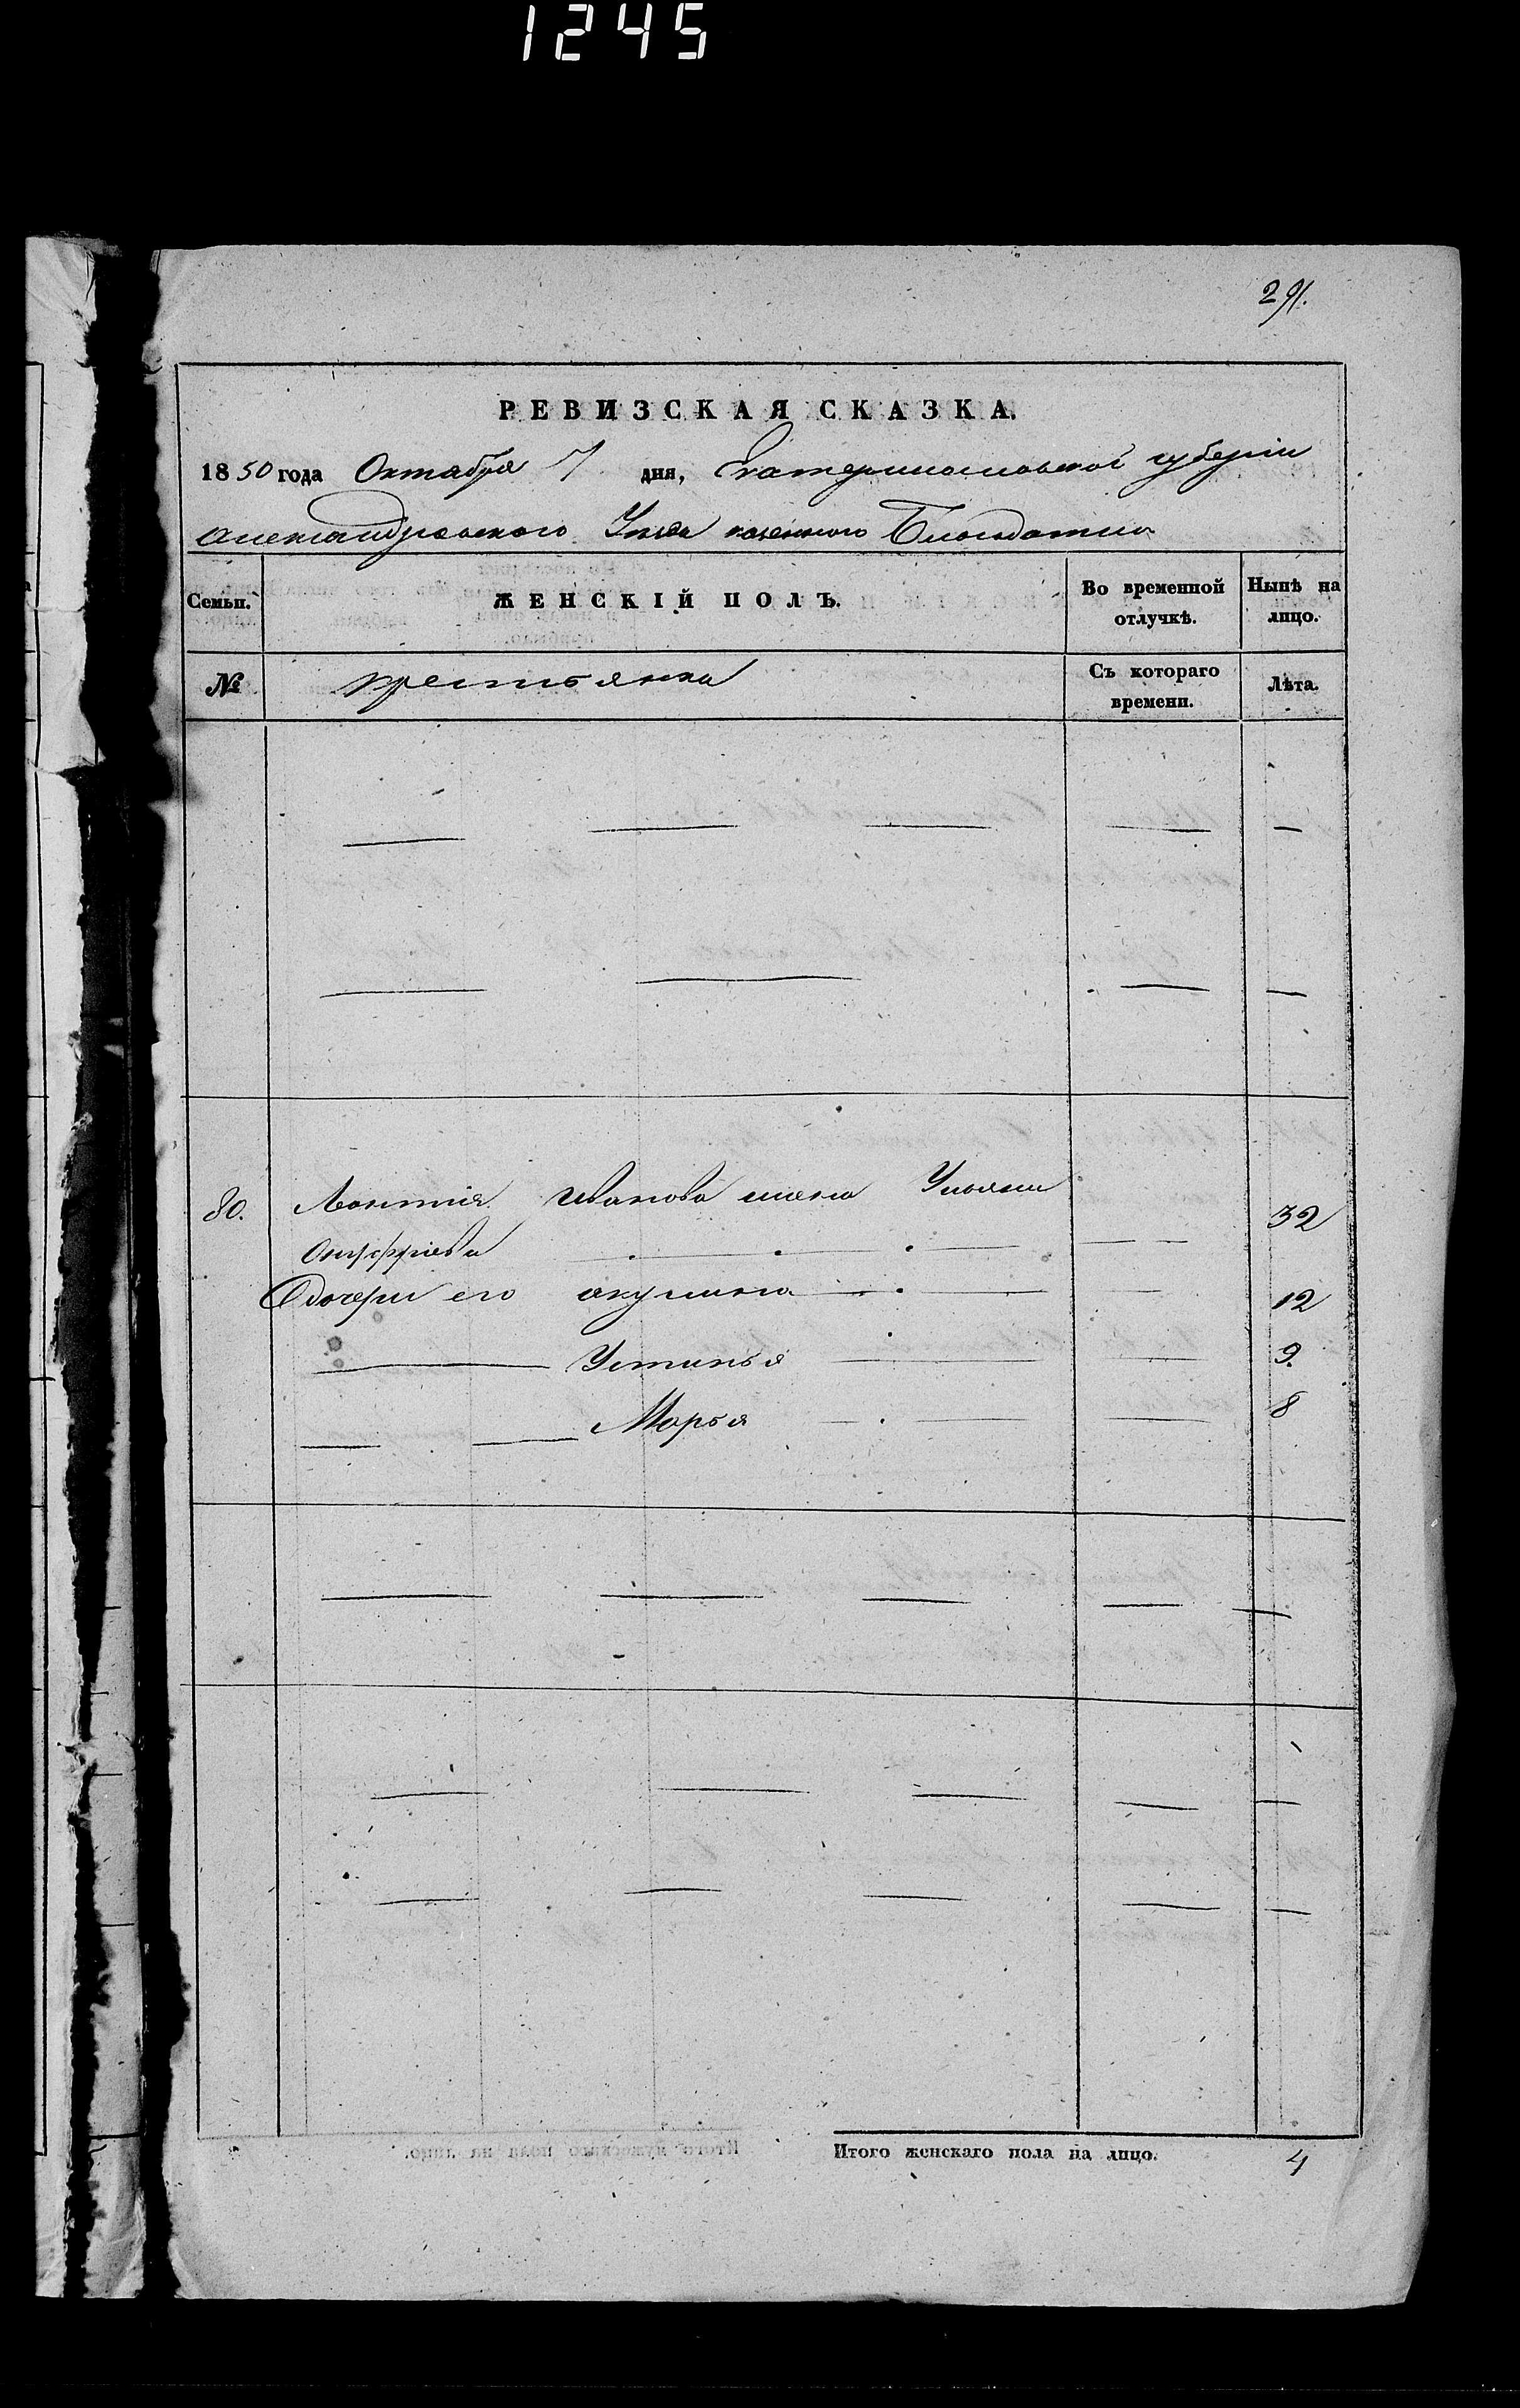 1245
291.
РЕВИЗСКАЯ СКАЗКА.
1850 года Октября 7 дня, Екатеринославской губернiи
Александровского Уезда казенного
Семьи. ЖЕНСКIЙ ПОЛЪ. Во временной отлучкѣ. Нынѣ на лицо.
№ крестьянка Съ котораго времени. Лѣта.
80. Леонтiя Иванова жена Ульяна 32
Онуфрiева
дочери его акулина 12
Устинья 9.
Марья 8
Итого женскаго пола на лицо. 4
Итого мужскаго пола на лицо.